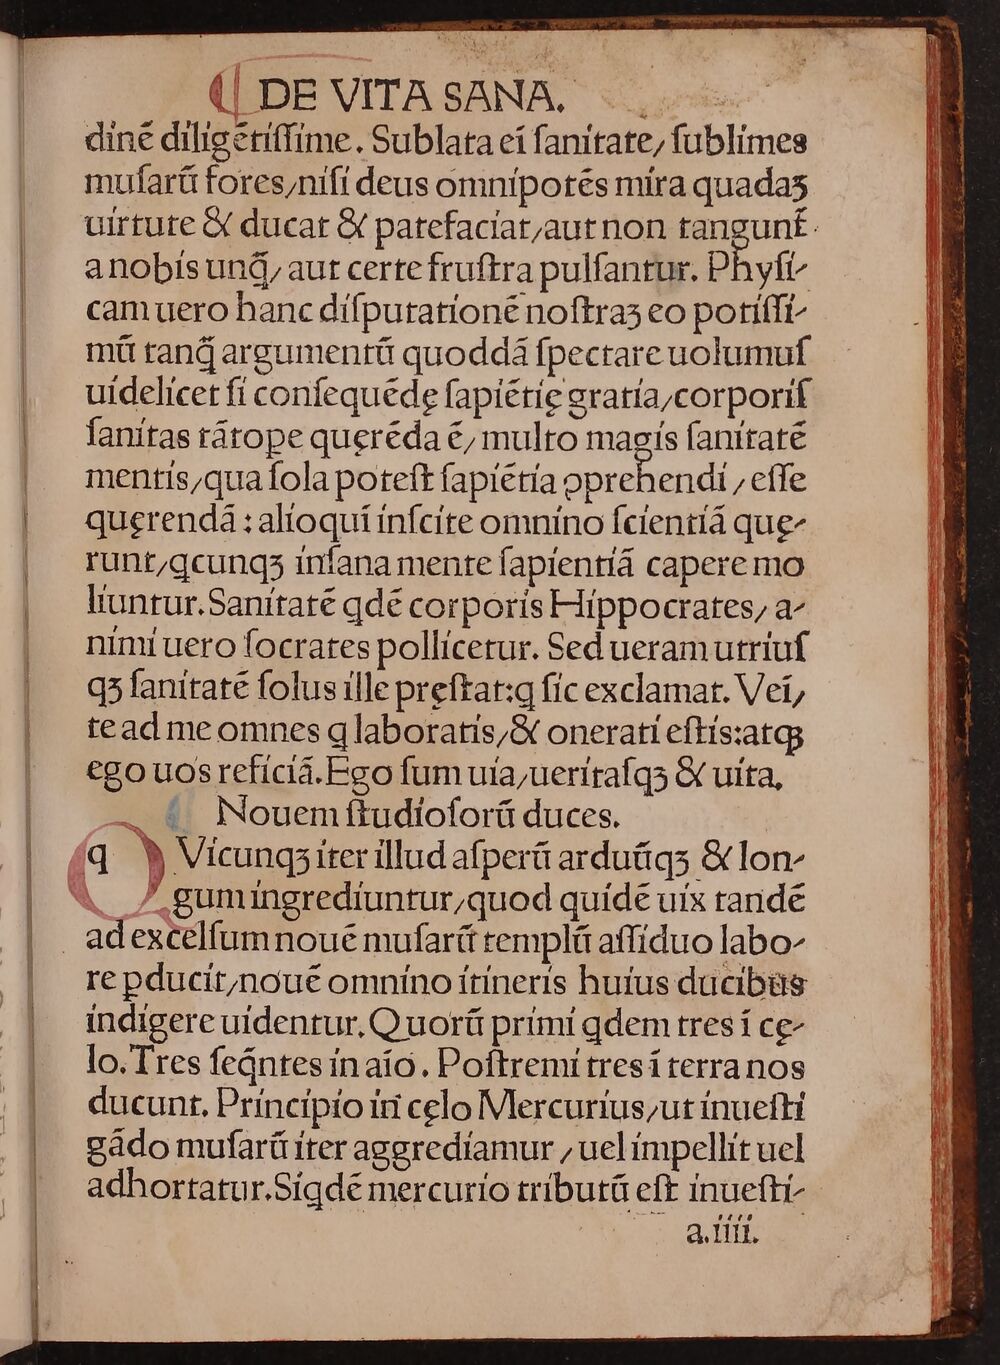 ¶ DE VITA SANA.
dinē diligētiſſime. Sublata eī ſanitate/ ſublimes
muſarū fores/niſi deus omnipotēs mira quadaꝫ
uirtute & ducat & patefaciat/aut non tangunt̄
a nobis unq̄/ aut certe fruſtra pulſantur. Phyſi-
cam uero hanc diſputationē noſtraꝫ eo potiſſi-
mū tanq̄ argumentū quoddā ſpectare uolumuſ
uidelicet ſi conſequēdę ſapiētię gratia/corporiſ
ſanitas tātoꝑe quęrēda ē/ multo magis ſanitatē
mentis/qua ſola poteſt ſapiētia ꝯprehendi / eſſe
quęrendā : alioqui inſcite omnino ſcientiā quę-
runt/qcunqꝫ inſana mente ſapientiā capere mo
liuntur. Sanitatē qdē corporis Hippocrates/ a-
nimi uero ſocrates pollicetur. Sed ueram utriuſ
qꝫ ſanitatē ſolus ille pręſtat:q ſic exclamat. Vei/
te ad me omnes q laboratis/& onerati eſtis:atqꝫ
ego uos reficiā. Ego ſum uia/ueritaſqꝫ & uita.
¶ Nouem ſtudioſorū duces.
q Vicunqꝫ iter illud aſperū arduūqꝫ & lon-
gum ingrediuntur/quod quidē uix tandē
ad excelſum nouē muſarū templū aſſiduo labo-
re ꝑducit/nouē omnino itineris huius ducibus
indigere uidentur. Quorū primi qdem tres ī cę-
lo. Tres ſeq̄ntes in aīo. Poſtremi tres ī terra nos
ducunt. Principio in cęlo Mercurius/ut inueſti
gādo muſarū iter aggrediamur / uel impellit uel
adhortatur. Siqdē mercurio tributū eſt inueſti-
a.iiii.